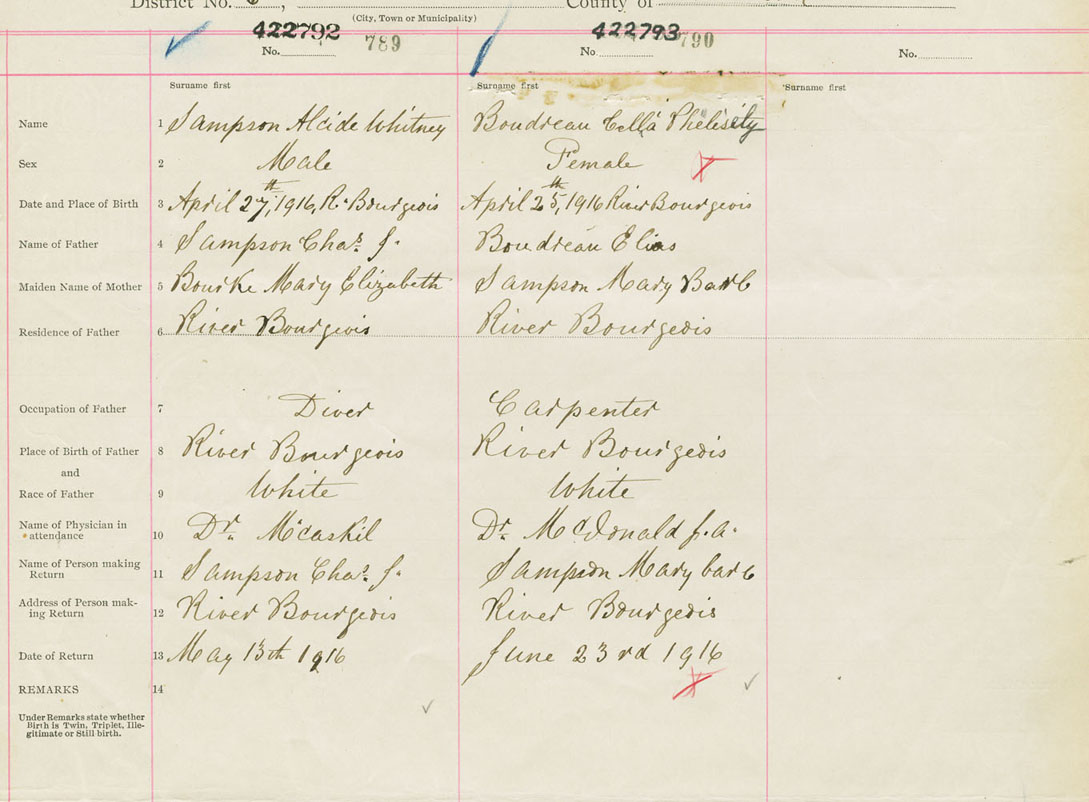 District No. 6, County of
(City, Town or Municipality)
422792 422793
No. 789 No 790 No.
Surname first Surname first Surname first
Name 1 Sampson Alcide Whitney Boudreau Cella
Sex 2 Male Female
Date and Place of Birth 3 April 27th, 1916, R. Bourgeois April 25th, 1916 River Bourgeois
Name of Father 4 Sampson Chas. J. Boudreau Elias
Maiden Name of Mother 5 Bourke Mary Elizabeth Sampson Mary Barb
Residence of Father 6 River Bourgeois River Bourgeois
Occupation of Father 7 Diver Carpenter
Place of Birth of Father 8 River Bourgeois River Bourgeois
and
Race of Father 9 White White
Name of Physician in
attendance 10 Dr. McCaskil Dr. McDonald J. A.
Name of Person making
Return 11 Sampson Chas. J. Sampson Mary barb
Address of Person mak-
ing Return 12 River Bourgeois River Bourgeois
Date of Return 13 May 13th 1916 June 23rd 1916
REMARKS 14
Under Remarks state whether
Birth is Twin, Triplet, Ille-
gitimate or Still birth.